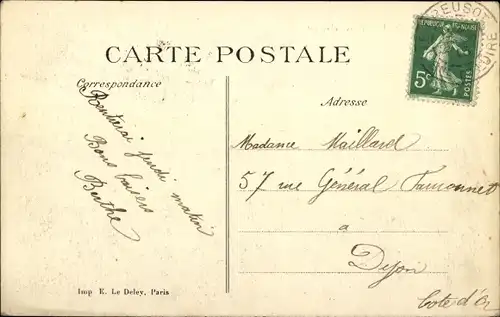 CARTE POSTALE
Correspondance
Rentrerai jeudi matin
Bons baisers
Berthe
Adresse
Madame Maillard
57 rue Général Fauconnet
à
Dijon
Cote d'Or
REPUBLIQUE FRANÇAISE
5c
POSTES
Imp E. Le Deley, Paris